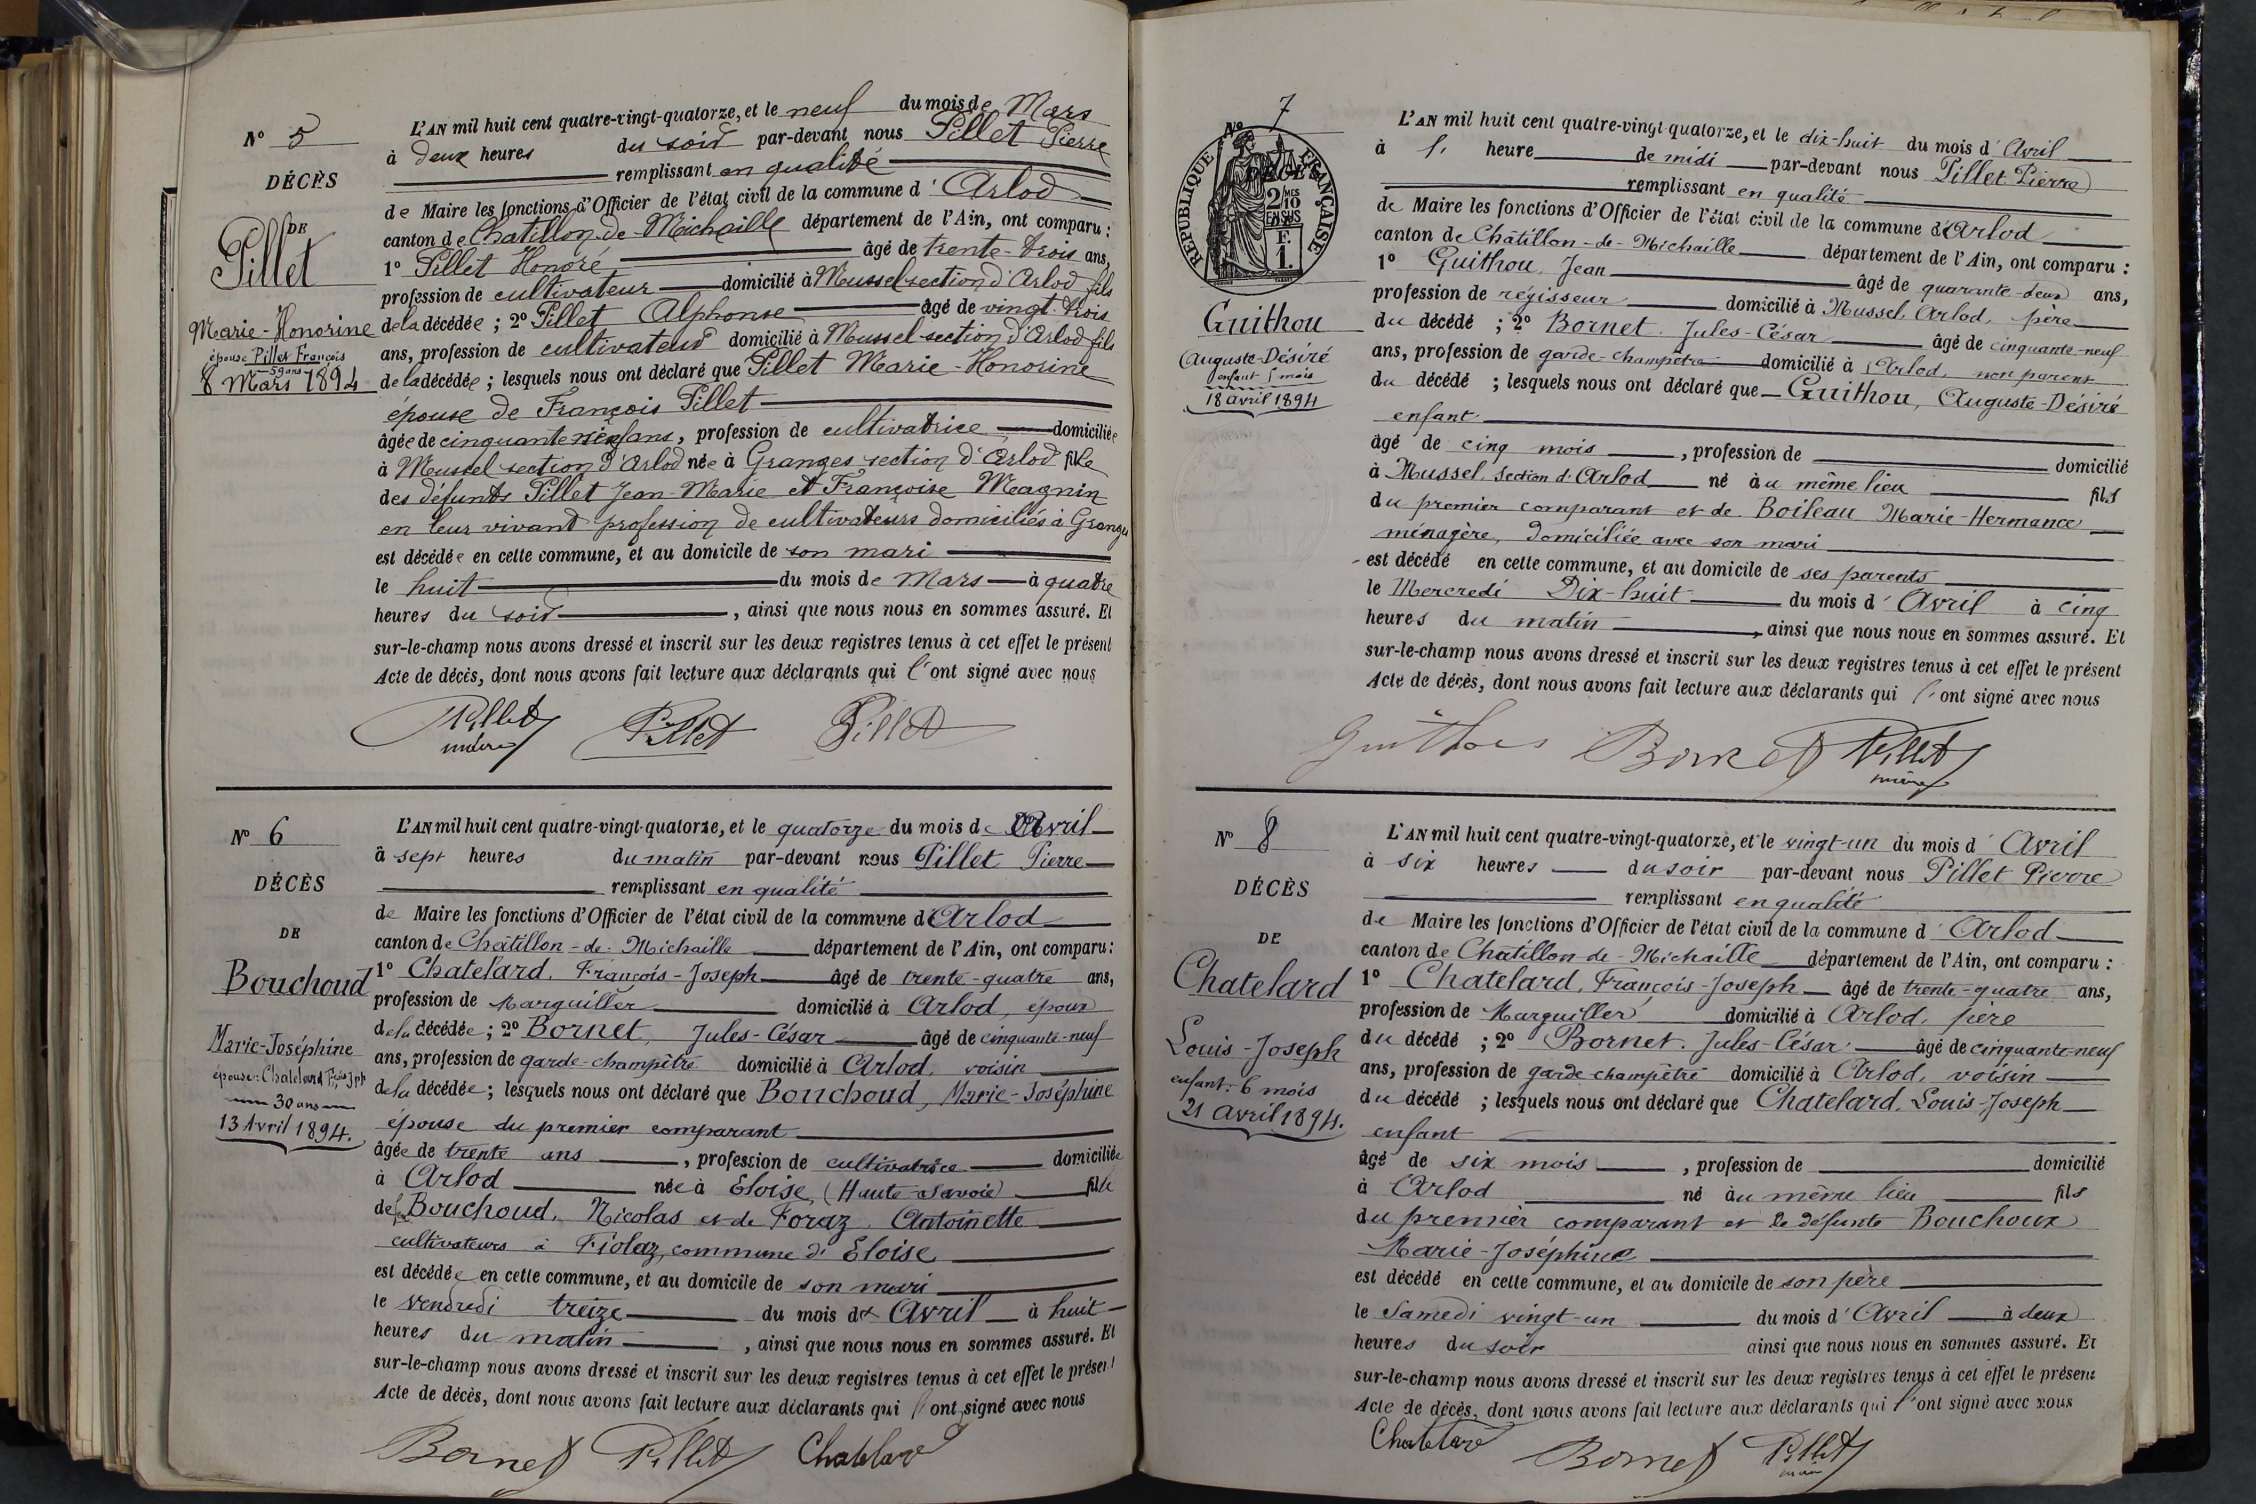 Nº 5
DÉCÈS
DE
Pillet
Marie-Honorine
épouse Pillet François
59 ans
8 Mars 1894
L'AN mil huit cent quatre-vingt-quatorze, et le neuf du mois de Mars
à deux heures du soir par-devant nous Pillet Pierre
remplissant en qualité
de Maire les fonctions d'Officier de l'état civil de la commune d'Arlod
canton de Chatillon-de-Michaille département de l'Ain, ont comparu :
1º Pillet Honoré âgé de trente-trois ans,
profession de cultivateur domicilié à Mussel section d'Arlod fils
de la décédée ; 2º Pillet Alphonse âgé de vingt-trois
ans, profession de cultivateur domicilié à Mussel section d'Arlod fils
de la décédée ; lesquels nous ont déclaré que Pillet Marie-Honorine
épouse de François Pillet
âgée de cinquante ans, profession de cultivatrice domiciliée
à Mussel section d'Arlod née à Granges section d'Arlod fille
des défunts Pillet Jean-Marie et Françoise Magnin
en leur vivant profession de cultivateurs domiciliés à Granges
est décédée en cette commune, et au domicile de son mari
le huit du mois de Mars à quatre
heures du soir, ainsi que nous nous en sommes assuré. Et
sur-le-champ nous avons dressé et inscrit sur les deux registres tenus à cet effet le présent
Acte de décès, dont nous avons fait lecture aux déclarants qui l'ont signé avec nous
Pillet Pillet Pillet
maire
Nº 6
DÉCÈS
DE
Bouchoud
Marie-Joséphine
épouse: Chatelard Fçois Jph
30 ans
13 Avril 1894.
L'AN mil huit cent quatre-vingt-quatorze, et le quatorze du mois de Avril
à sept heures du matin par-devant nous Pillet Pierre
remplissant en qualité
de Maire les fonctions d'Officier de l'état civil de la commune d'Arlod
canton de Châtillon-de-Michaille département de l'Ain, ont comparu :
1º Chatelard, François-Joseph âgé de trente-quatre ans,
profession de Marguiller domicilié à Arlod, époux
de la décédée ; 2º Bornet, Jules-César âgé de cinquante-neuf
ans, profession de garde-champêtre domicilié à Arlod, voisin
de la décédée ; lesquels nous ont déclaré que Bouchoud, Marie-Joséphine
épouse du premier comparant
âgée de trente ans, profession de cultivatrice domiciliée
à Arlod née à Eloise, (Haute-Savoie) fille
de Bouchoud, Nicolas et de Foraz, Antoinette
cultivateurs à Fiolaz, commune d'Eloise
est décédée en cette commune, et au domicile de son mari
le vendredi treize du mois d' Avril à huit
heures du matin, ainsi que nous nous en sommes assuré. Et
sur-le-champ nous avons dressé et inscrit sur les deux registres tenus à cet effet le présent
Acte de décès, dont nous avons fait lecture aux déclarants qui l'ont signé avec nous
Bornet Pillet Chatelard
Nº 7
RÉPUBLIQUE FRANÇAISE
DÉCÈS
2/10
EN SUS
F.
1.
Guithou
Auguste-Désiré
enfant 5 mois
18 avril 1894
L'AN mil huit cent quatre-vingt-quatorze, et le dix-huit du mois d'Avril
à 1. heure de midi par-devant nous Pillet Pierre
remplissant en qualité
de Maire les fonctions d'Officier de l'état civil de la commune d'Arlod
canton de Châtillon-de-Michaille département de l'Ain, ont comparu :
1º Guithou, Jean âgé de quarante-deux ans,
profession de régisseur domicilié à Mussel, Arlod, père
du décédé ; 2º Bornet, Jules-César âgé de cinquante-neuf
ans, profession de garde-champêtre domicilié à Arlod, non parent
du décédé ; lesquels nous ont déclaré que Guithou, Auguste-Désiré
enfant
âgé de cinq mois, profession de domicilié
à Mussel, section d'Arlod né au même lieu fils
du premier comparant et de Boileau Marie-Hermance
ménagère, domiciliée avec son mari
est décédé en cette commune, et au domicile de ses parents
le Mercredi Dix-huit du mois d'Avril à cinq
heures du matin, ainsi que nous nous en sommes assuré. Et
sur-le-champ nous avons dressé et inscrit sur les deux registres tenus à cet effet le présent
Acte de décès, dont nous avons fait lecture aux déclarants qui l'ont signé avec nous
Guithou Bornet Pillet
maire
Nº 8
DÉCÈS
DE
Chatelard
Louis-Joseph
enfant: 6 mois
21 avril 1894.
L'AN mil huit cent quatre-vingt-quatorze, et le vingt-un du mois d'Avril
à six heures du soir par-devant nous Pillet Pierre
remplissant en qualité
de Maire les fonctions d'Officier de l'état civil de la commune d'Arlod
canton de Chatillon-de-Michaille département de l'Ain, ont comparu :
1º Chatelard, François-Joseph âgé de trente-quatre ans,
profession de Marguiller domicilié à Arlod, père
du décédé ; 2º Bornet, Jules-César âgé de cinquante-neuf
ans, profession de garde-champêtre domicilié à Arlod, voisin
du décédé ; lesquels nous ont déclaré que Chatelard, Louis-Joseph
enfant
âgé de six mois, profession de domicilié
à Arlod né au même lieu fils
du premier comparant et de défunte Bouchoux
Marie-Joséphine
est décédé en cette commune, et au domicile de son père
le Samedi vingt-un du mois d'Avril à deux
heures du soir ainsi que nous nous en sommes assuré. Et
sur-le-champ nous avons dressé et inscrit sur les deux registres tenus à cet effet le présent
Acte de décès, dont nous avons fait lecture aux déclarants qui l'ont signé avec nous
Chatelard Bornet Pillet
maire